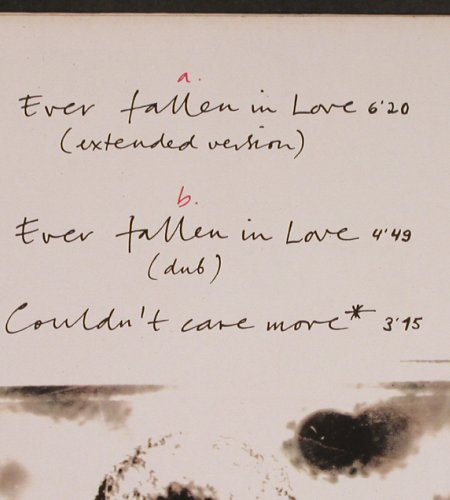 a.
Ever fallen in Love 6'20
(extended version)
b.
Ever fallen in Love 4'49
(dub)
Couldn't care more* 3'15